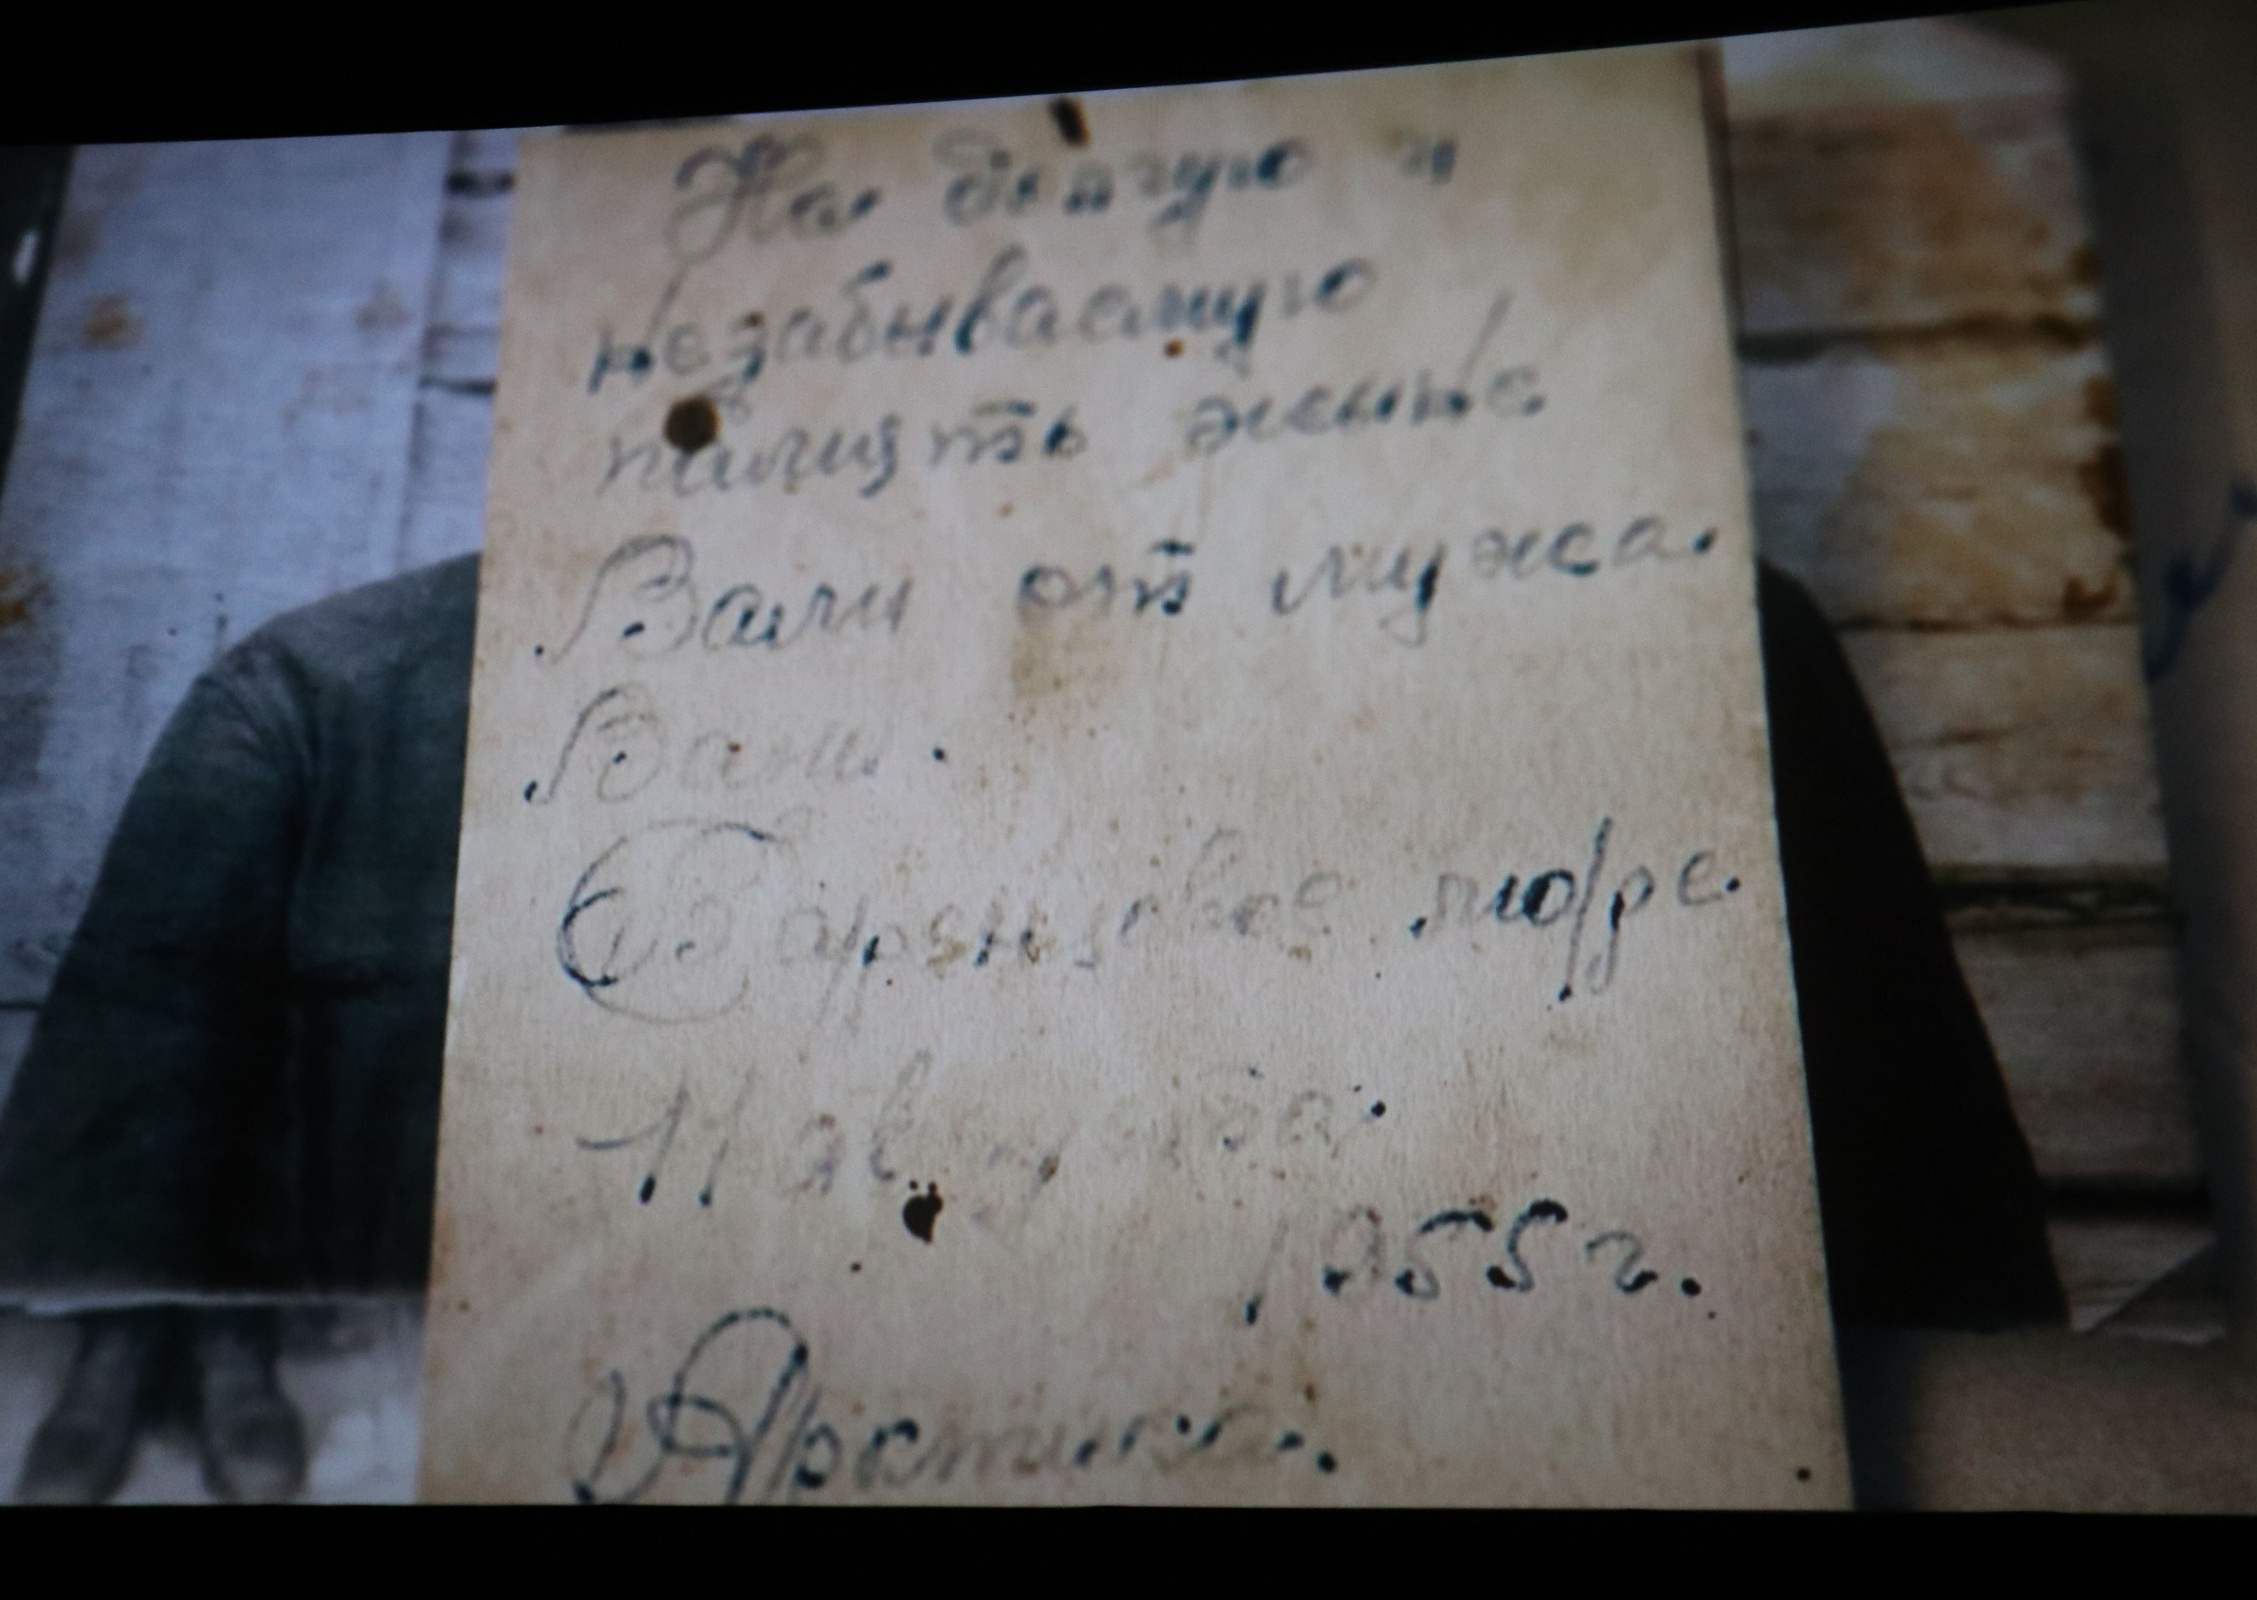 На долгую и
незабываемую
память жене
Вали от мужа.
Вани.
Баренцевое море.
11 августа.
1955 г.
Арктика.